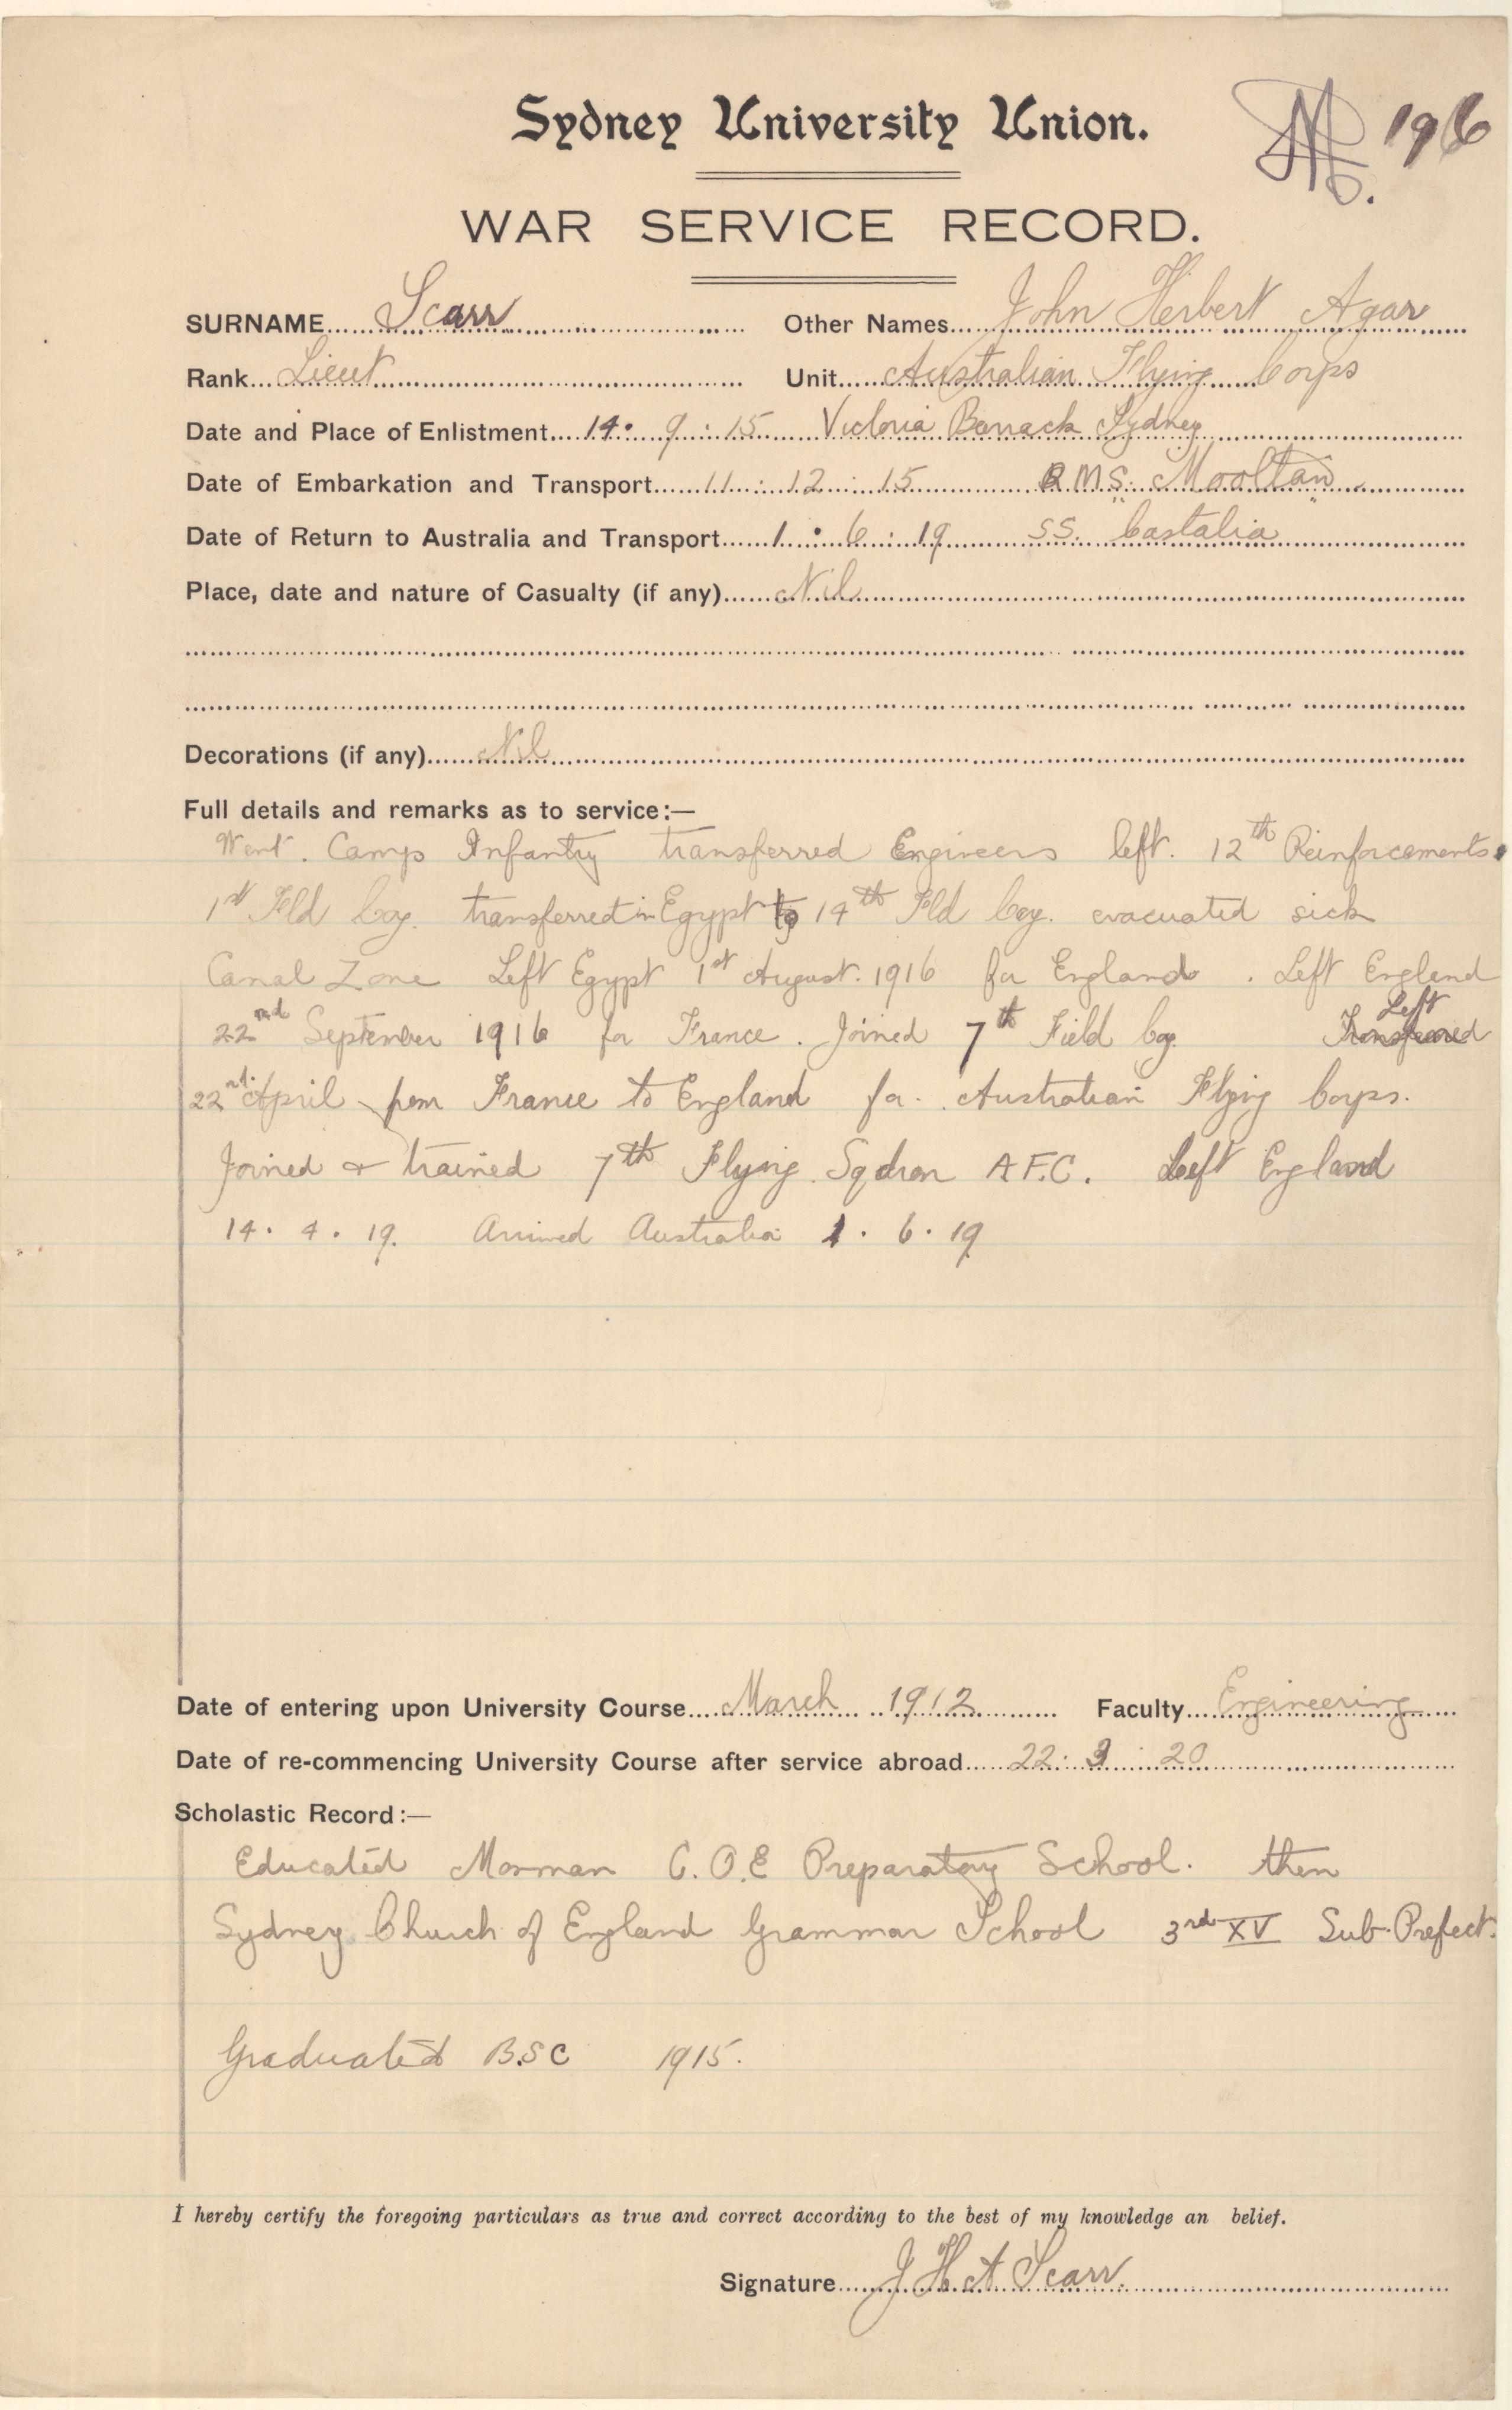 Sydney University Union.
196
WAR SERVICE RECORD.
SURNAME Scarr Other Names John Herbert Agar
Rank Lieut Unit Australian Flying Corps
Date and Place of Enlistment 14. 9 : 15 Victoria Barrack Sydney
Date of Embarkation and Transport 11 : 12 : 15 R.M.S. "Mooltan"
Date of Return to Australia and Transport 1 . 6 : 19 SS. Castalia
Place, date and nature of Casualty (if any) Nil
Decorations (if any) Nil
Full details and remarks as to service:—
Went. Camp Infantry transferred Engineers left. 12th Reinforcements.
1st Fld Coy. transferred in Egypt to 14th Fld Coy. evacuated sick
Canal Zone Left Egypt 1st August. 1916 for England . Left England
22nd September 1916 for France . Joined 7th Field Coy. Left
22nd April from France to England for . Australian Flying Corps.
Joined & trained 7th Flying Sqdron A.F.C. Left England
14. 4. 19. Arrived Australia 1. 6. 19
Date of entering upon University Course March 1912 Faculty Engineering
Date of re-commencing University Course after service abroad 22 : 3 : 20
Scholastic Record:—
Educated Mosman C.O.E Preparatory School. then
Sydney Church of England Grammar School 3rd XV Sub-Prefect.
Graduated B.SC 1915.
I hereby certify the foregoing particulars as true and correct according to the best of my knowledge an belief.
Signature J H A Scarr.